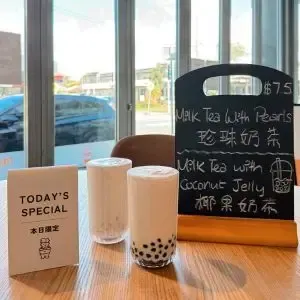 TODAY'S
SPECIAL
本日限定
$7.5
Milk Tea With Pearls
珍珠奶茶
Milk Tea with
Coconut Jelly
椰果奶茶